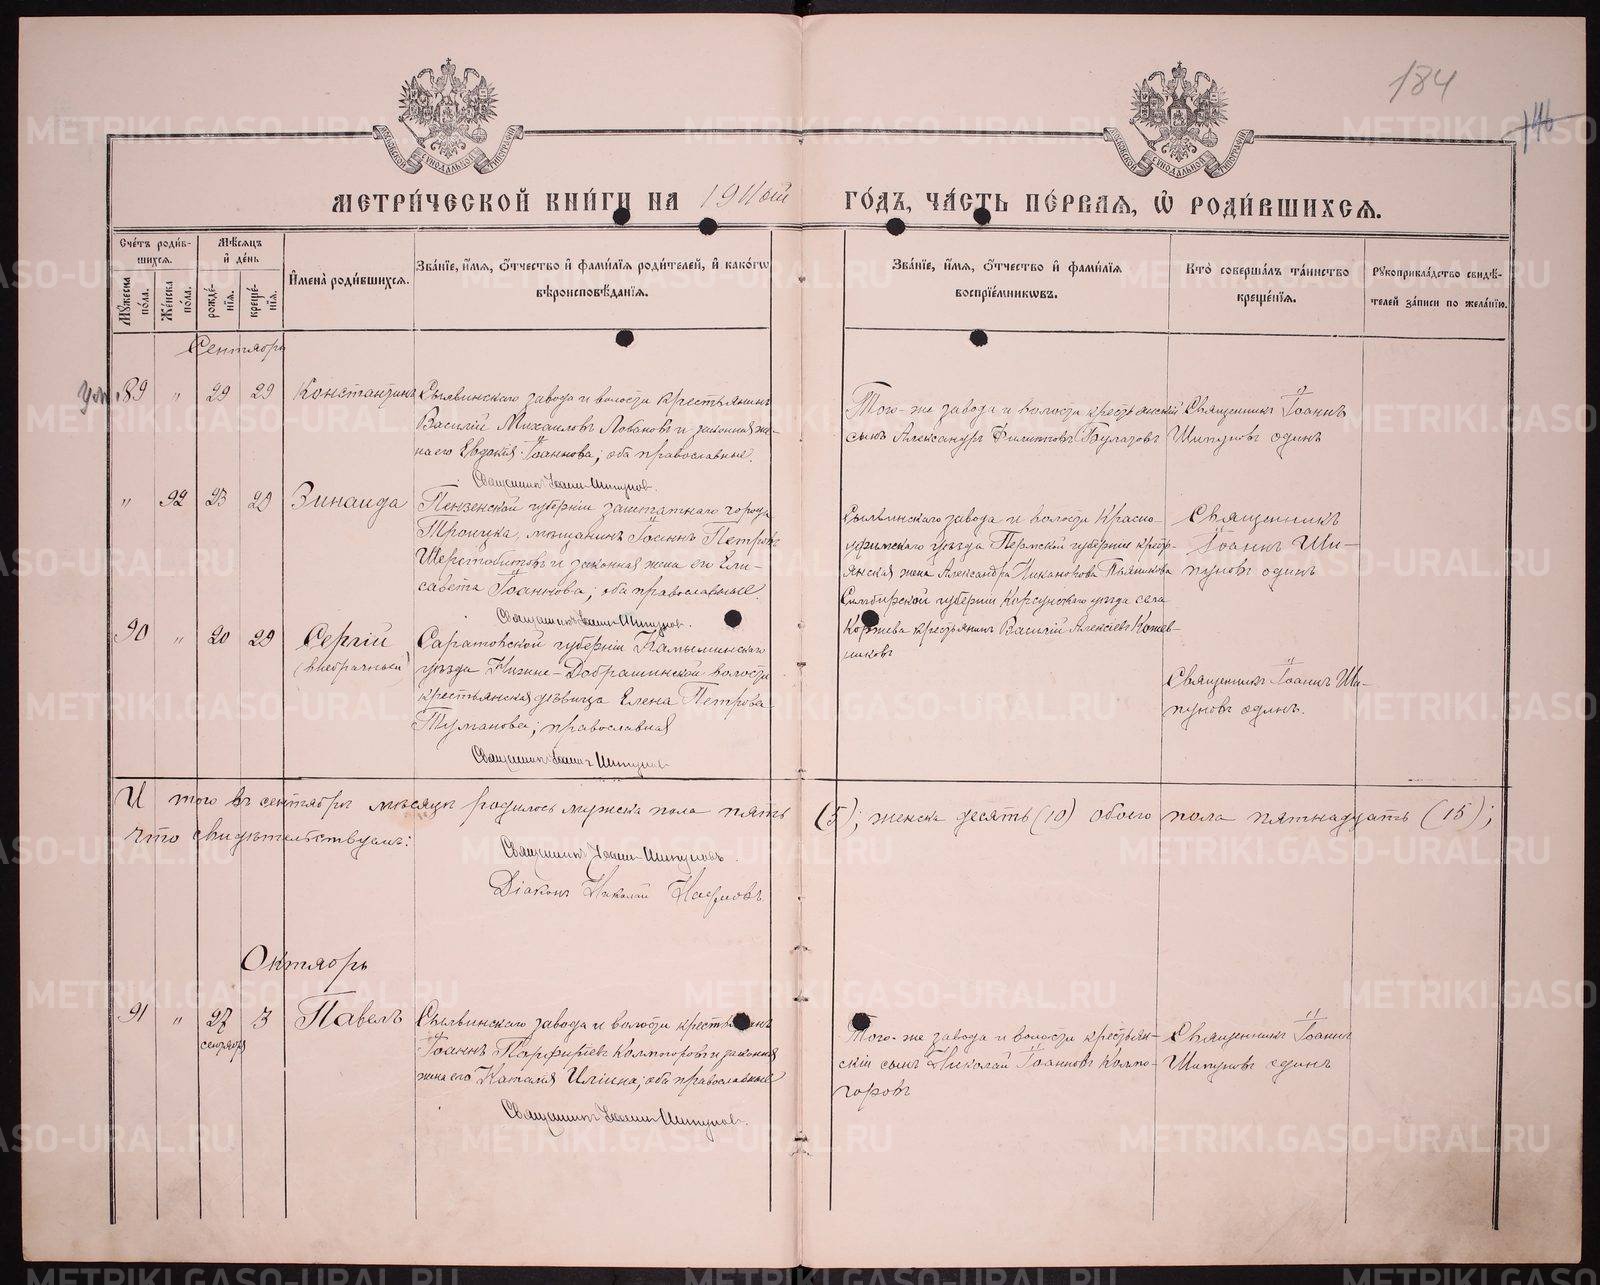 184
146
МЕТРИ́ЧЕСКОЙ КНИ́ГИ НА 1911ый ГО́ДЪ, ЧА́СТЬ ПЕ́РВАЯ, Ѡ҆ РОДИ́ВШИХСЯ.
Сче́тъ роди́в-
шихся.
Мѣ́сяцъ
и҆ де́нь
Му́жеска
по́ла.
Же́нска
по́ла.
рожде́-
нїя.
креще́-
нїя.
И҆мена̀ роди́вшихся.
Зва́нїе, и҆́мя, ѻ҆́тчество и҆ фами́лїя роди́телей, и҆ како́гѡ
вѣроисповѣ́данїя.
Зва́нїе, и҆́мя, ѻ҆́тчество и҆ фами́лїя
воспрїе́мникѡвъ.
Кто̀ соверша́лъ та́инство
креще́нїя.
Рукоприкла́дство свидѣ́-
телей за́писи по жела́нїю.
Сентябрь
Ум. 89 " 29 29 Константинъ
Сылвинскаго завода и волости крестьянинъ
Василій Михаиловъ Лобановъ и законная же-
на его Евдокія Іоаннова; оба православные.
Священникъ Іоаннъ Шипуновъ.
Того-же завода и волости крестьянскій
сынъ Александръ Филипповъ Булатовъ
Священникъ Іоаннъ
Шипуновъ одинъ
" 92 23 29 Зинаида
Пензенской губерніи заштатнаго города
Троицка, мѣщанинъ Іоаннъ Петровъ
Шерстобитовъ и законная жена его Ели-
савета Іоаннова; оба православные.
Священникъ Іоаннъ Шипуновъ.
Сылвинскаго завода и волости Красно-
уфимскаго уѣзда Пермской губерніи кресть-
янская жена Александра Никанорова Пьянкова
Священникъ
Іоаннъ Ши-
пуновъ одинъ
90 " 20 29 Сергій
(внебрачный)
Саратовской губерніи Камышинскаго
уѣзда Нижне-Добринской волости
крестьянская дѣвица Елена Петрова
Туманова; православная
Священникъ Іоаннъ Шипуновъ
Симбирской губерніи Корсунскаго уѣзда села
Коржева крестьянинъ Василій Алексѣевъ Кожев-
никовъ
Священникъ Іоаннъ Ши-
пуновъ одинъ.
И того въ сентябрѣ мѣсяцѣ родилось мужска пола пять (5); женска десять (10) обоего пола пятнадцать (15);
что свидѣтельствуемъ:
Священникъ Іоаннъ Шипуновъ.
Діаконъ Николай
Октябрь
91 " 27 3 Павелъ
сентября
Сылвинскаго завода и волости крестьянинъ
Іоаннъ Парфиріевъ Колмогоровъ и законная
жена его Наталія Иліина; оба православные
Священникъ Іоаннъ Шипуновъ.
Того-же завода и волости крестьян-
скій сынъ Николай Іоанновъ Колмо-
горовъ
Священникъ Іоаннъ
Шипуновъ одинъ
METRIKI.GASO-URAL.RU